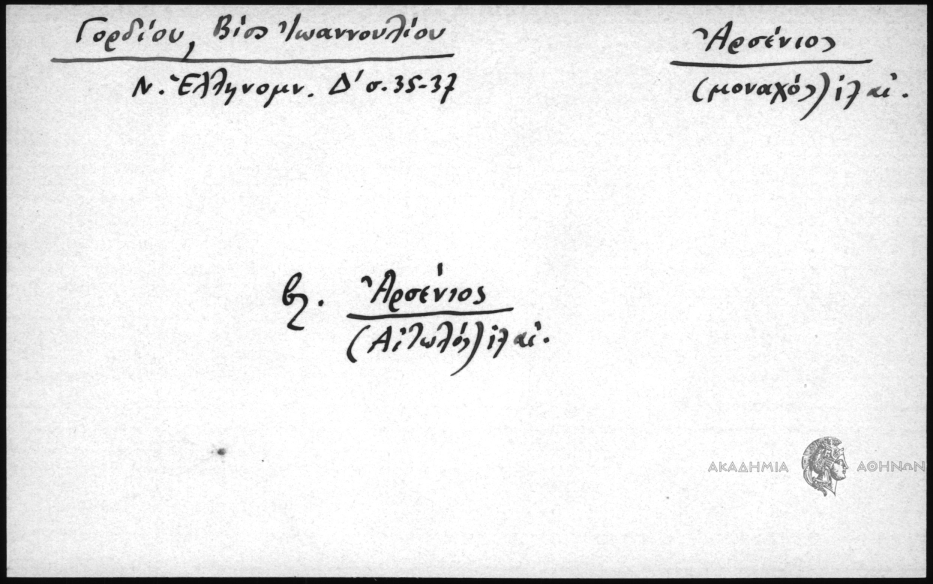 Γορδίου, Βίος Ἰωαννουλίου
Ν. Ἑλληνομν. Δ' σ. 35-37
Ἀρσένιος
(μοναχός) ιζ αἰ.
βλ. Ἀρσένιος
(Αἰτωλός) ιζ αἰ.
ΑΚΑΔΗΜΙΑ ΑΘΗΝΩΝ